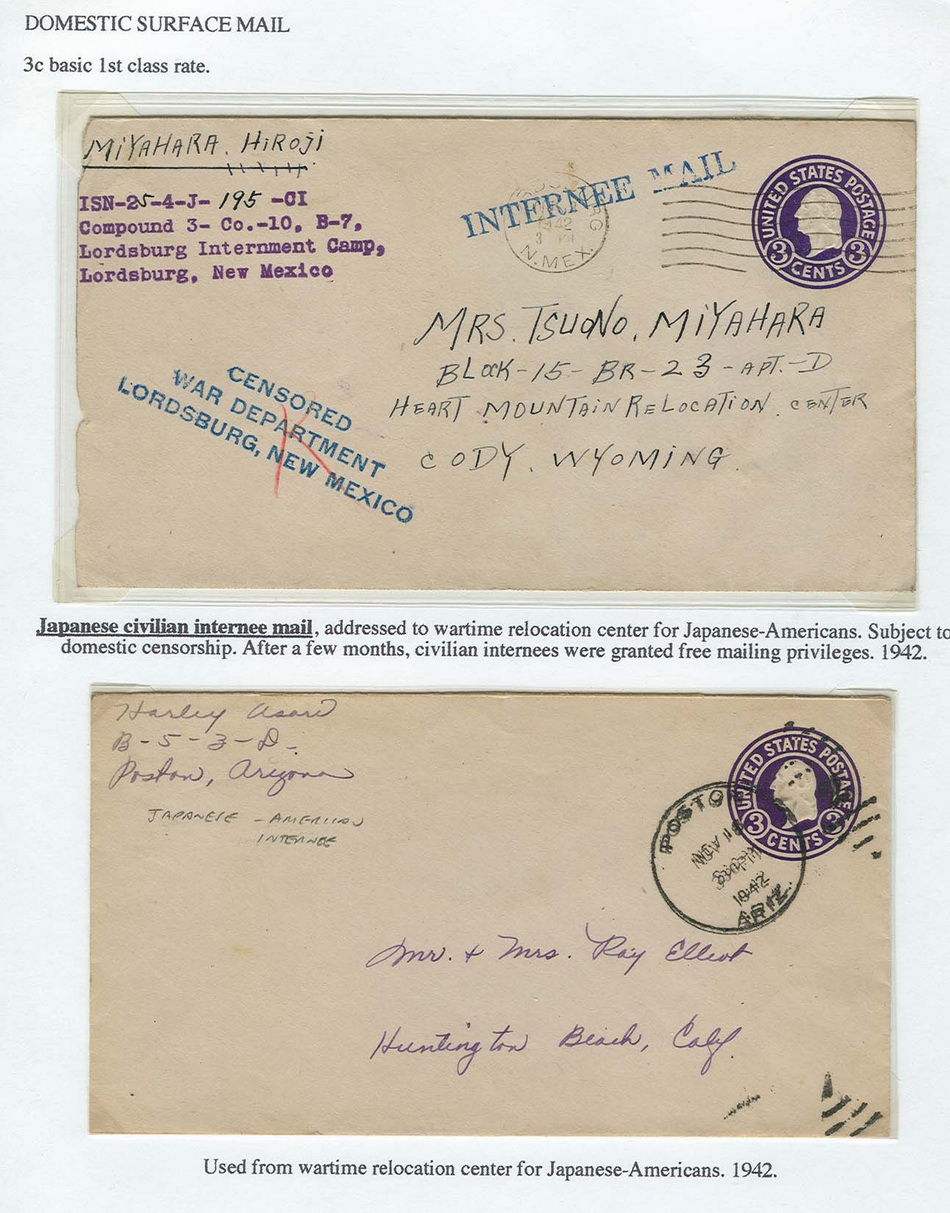 DOMESTIC SURFACE MAIL
3c basic 1st class rate.
MIYAHARA. HIROJI
ISN-25-4-J- 195 -CI
Compound 3- Co.-10, B-7,
Lordsburg Internment Camp,
Lordsburg, New Mexico
INTERNEE MAIL
1942
N.MEX.
UNITED STATES POSTAGE
3 CENTS 3
MRS. TSUONO. MIYAHARA
BLOCK-15-BR-23-APT.-D
HEART MOUNTAIN RELOCATION. CENTER
CODY. WYOMING.
CENSORED
WAR DEPARTMENT
LORDSBURG, NEW MEXICO
Japanese civilian internee mail, addressed to wartime relocation center for Japanese-Americans. Subject to
domestic censorship. After a few months, civilian internees were granted free mailing privileges. 1942.
Harley Asari
B-5-3-D.
Poston, Arizona
JAPANESE-AMERICAN
INTERNEE
UNITED STATES POSTAGE
3 CENTS 3
POSTON
1942
ARIZ.
Mr. + Mrs. Ray Elliot
Huntington Beach, Calif.
Used from wartime relocation center for Japanese-Americans. 1942.